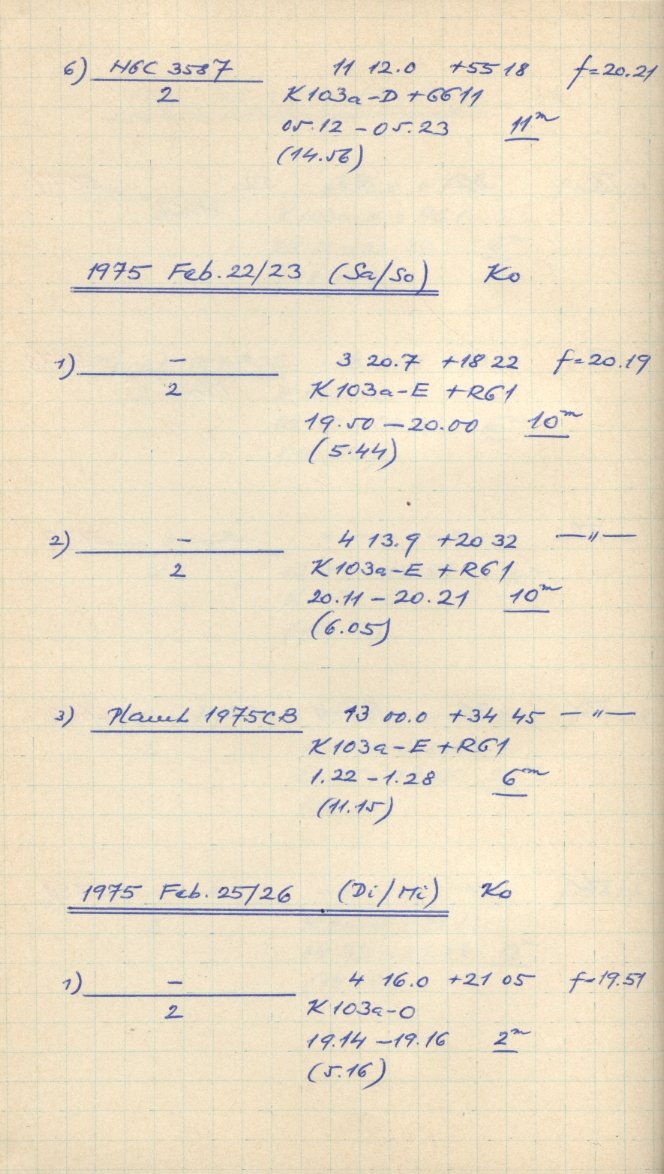 6) NGC 3587 11 12.0 +55 18 f=20.21
2 K103a-D + GG11
05.12 - 05.23 11m
(14.56)
1975 Feb. 22/23 (Sa/So) Ko
1) - 3 20.7 +18 22 f=20.19
2 K103a-E + RG1
19.50 - 20.00 10m
(5.44)
2) - 4 13.9 +20 32 —"—
2 K103a-E + RG1
20.11 - 20.21 10m
(6.05)
3) Planet 1975CB 13 00.0 +34 45 —"—
K103a-E + RG1
1.22 - 1.28 6m
(11.15)
1975 Feb. 25/26 (Di/Mi) Ko
1) - 4 16.0 +21 05 f=19.51
2 K103a-O
19.14 - 19.16 2m
(5.16)